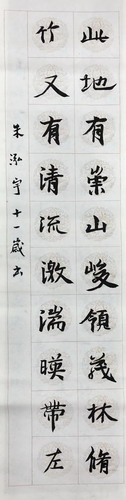 此地有崇山峻領茂林脩
竹又有清流激湍暎帶左
朱泓宇十一歲書